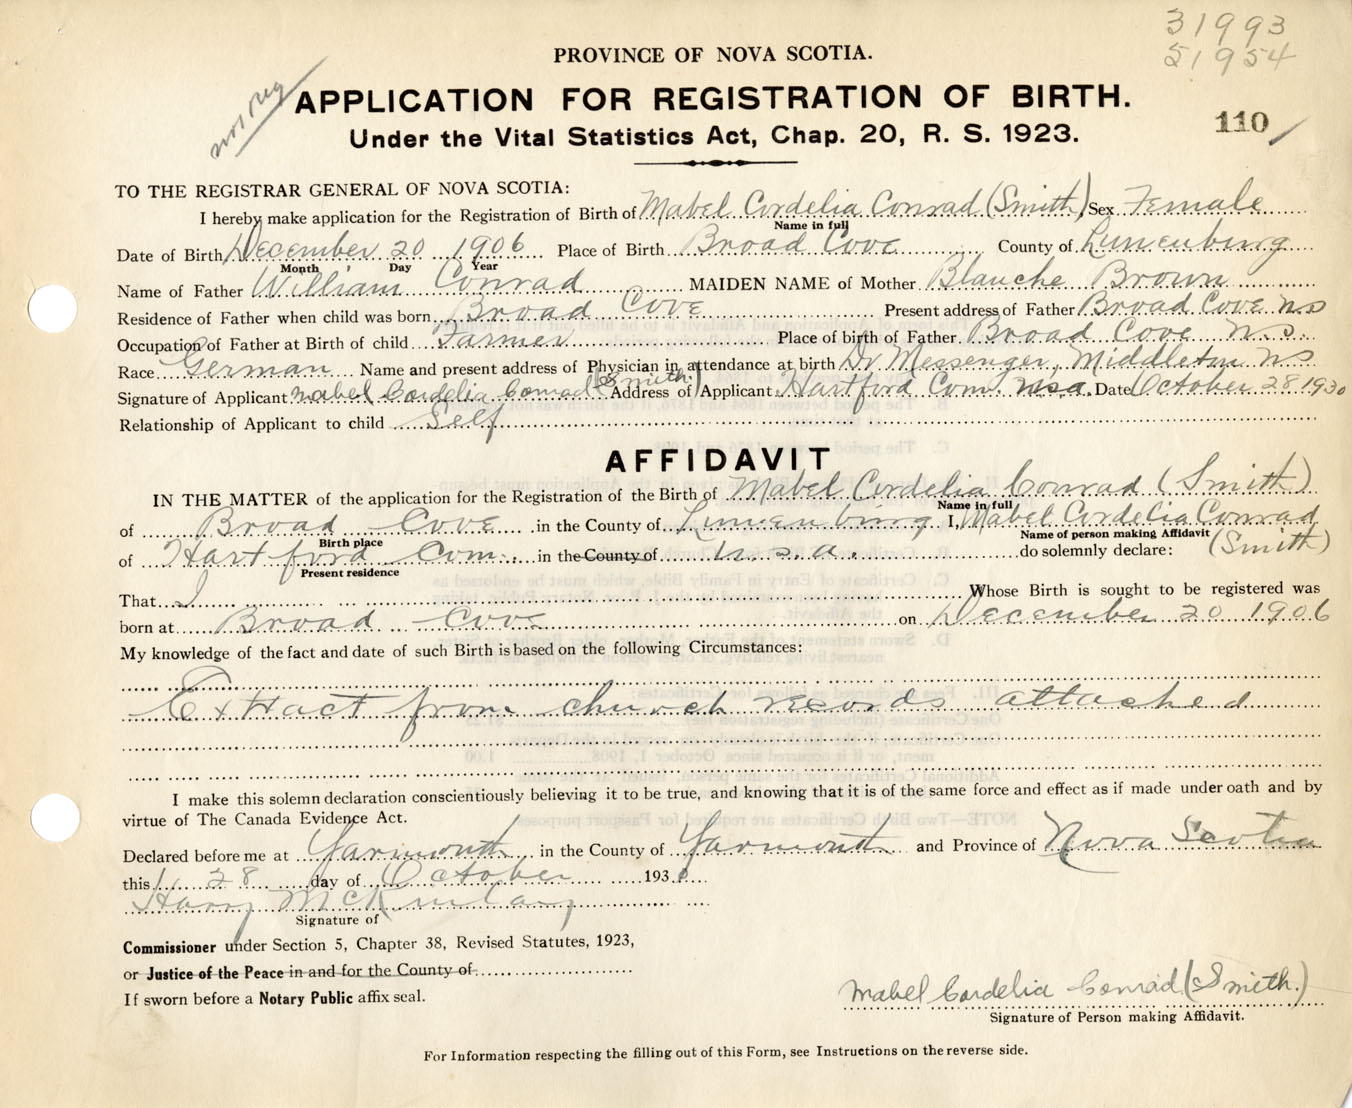 31993
51954
PROVINCE OF NOVA SCOTIA.
not reg
APPLICATION FOR REGISTRATION OF BIRTH.
110
Under the Vital Statistics Act, Chap. 20, R. S. 1923.
TO THE REGISTRAR GENERAL OF NOVA SCOTIA:
I hereby make application for the Registration of Birth of Mabel Cordelia Conrad (Smith) Sex Female
Name in full
Date of Birth December 20 1906 Place of Birth Broad Cove County of Lunenburg
Month Day Year
Name of Father William Conrad MAIDEN NAME of Mother Blanche Brown
Residence of Father when child was born Broad Cove Present address of Father Broad Cove N.S
Occupation of Father at Birth of child Farmer Place of birth of Father Broad Cove N.S.
Race German Name and present address of Physician in attendance at birth Dr Messenger, Middleton NS
Signature of Applicant Mabel Cordelia Conrad (Smith) Address of Applicant Hartford Conn. U.S.A. Date October 28 1930
Relationship of Applicant to child Self
AFFIDAVIT
IN THE MATTER of the application for the Registration of the Birth of Mabel Cordelia Conrad (Smith)
Name in full
of Broad Cove in the County of Lunenburg I, Mabel Cordelia Conrad
Birth place Name of person making Affidavit
of Hartford Conn. in the County of U.S.A. do solemnly declare: (Smith)
Present residence
That I Whose Birth is sought to be registered was
born at Broad Cove on December 20 1906
My knowledge of the fact and date of such Birth is based on the following Circumstances:
Extract from church records attached
I make this solemn declaration conscientiously believing it to be true, and knowing that it is of the same force and effect as if made under oath and by
virtue of The Canada Evidence Act.
Declared before me at Yarmouth in the County of Yarmouth and Province of Nova Scotia
this 28 day of October 1930
Harry McKinlay
Signature of
Commissioner under Section 5, Chapter 38, Revised Statutes, 1923,
or Justice of the Peace in and for the County of
If sworn before a Notary Public affix seal.
Mabel Cordelia Conrad (Smith.)
Signature of Person making Affidavit.
For Information respecting the filling out of this Form, see Instructions on the reverse side.